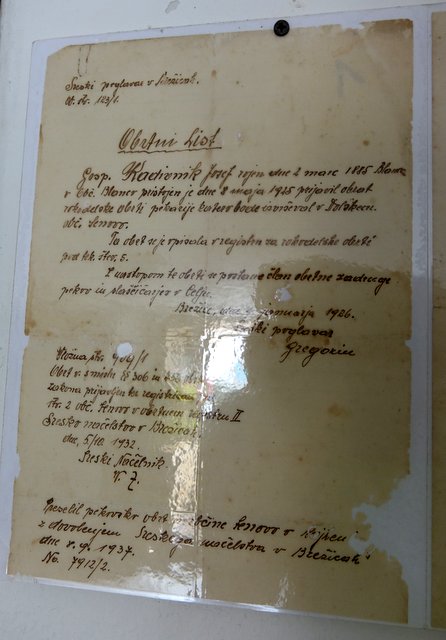 Sreski poglavar v Brežicah.
Ob. št. 123/1.
Obrtni List
Gosp. Radivnik Josef rojen dne 2 marc 1885 Blanca
v obč. Blanca pristojen je dne 8 maja 1925 prijavil obrat
rokodelske obrti pekarije katero bode izvrševal v
obč. Senovo.
Ta obrt se je vpisala v register za rokodelske obrti
pod tek. štev. 5.
Z nastopom te obrti se postane član obrtne zadruge
pekov in slaščičarjev v Celju.
Brežice, dne januarja 1926.
poglavar
Gregorin
909/1
Obrt v smislu §§ 306 in
zakona prijavljen ter registriran
str. 2 obč. Senovo v obrtnem registru II
Sresko načelstvo v Brežicah.
dne, 5/10. 1932.
Sreski Načelnik
Preselil pekovsko obrt iz občine Senovo v
z dovoljenjem Sreskega načelstva v Brežicah
dne 8.9. 1937.
No. 7912/2.